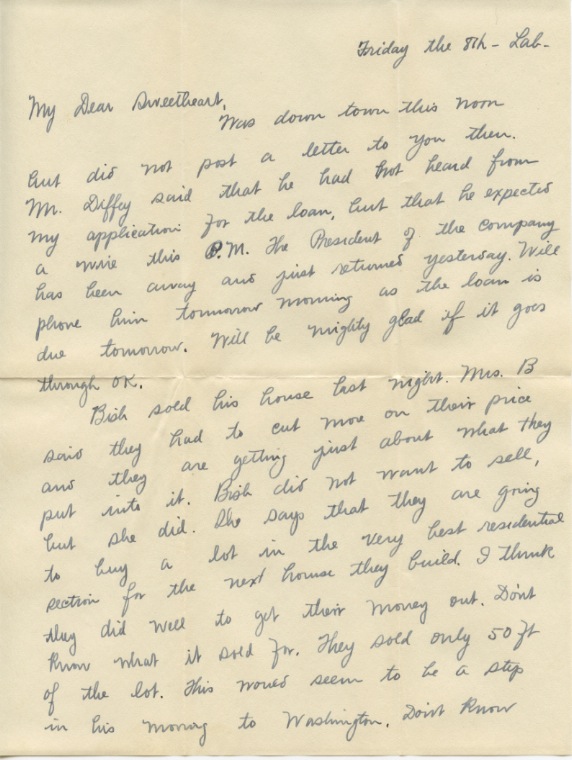 Friday the 8th - Lab-
My Dear Sweetheart,
Was down town this noon
but did not post a letter to you then.
Mr. Diffey said that he had not heard from
my application for the loan, but that he expected
a wire this P.M. The President of the company
has been away and just returned yesterday. Will
phone him tomorrow morning as the loan is
due tomorrow. Will be mighty glad if it goes
through OK.
Bish sold his house last night. Mrs. B
said they had to cut more on their price
and they are getting just about what they
put into it. Bish did not want to sell,
but she did. She says that they are going
to buy a lot in the very best residential
section for the next house they build. I think
they did well to get their money out. Don't
know what it sold for. They sold only 50 ft
of the lot. This would seem to be a step
in his moving to Washington. Don't know